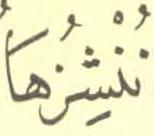 نُنْشِزُهَا